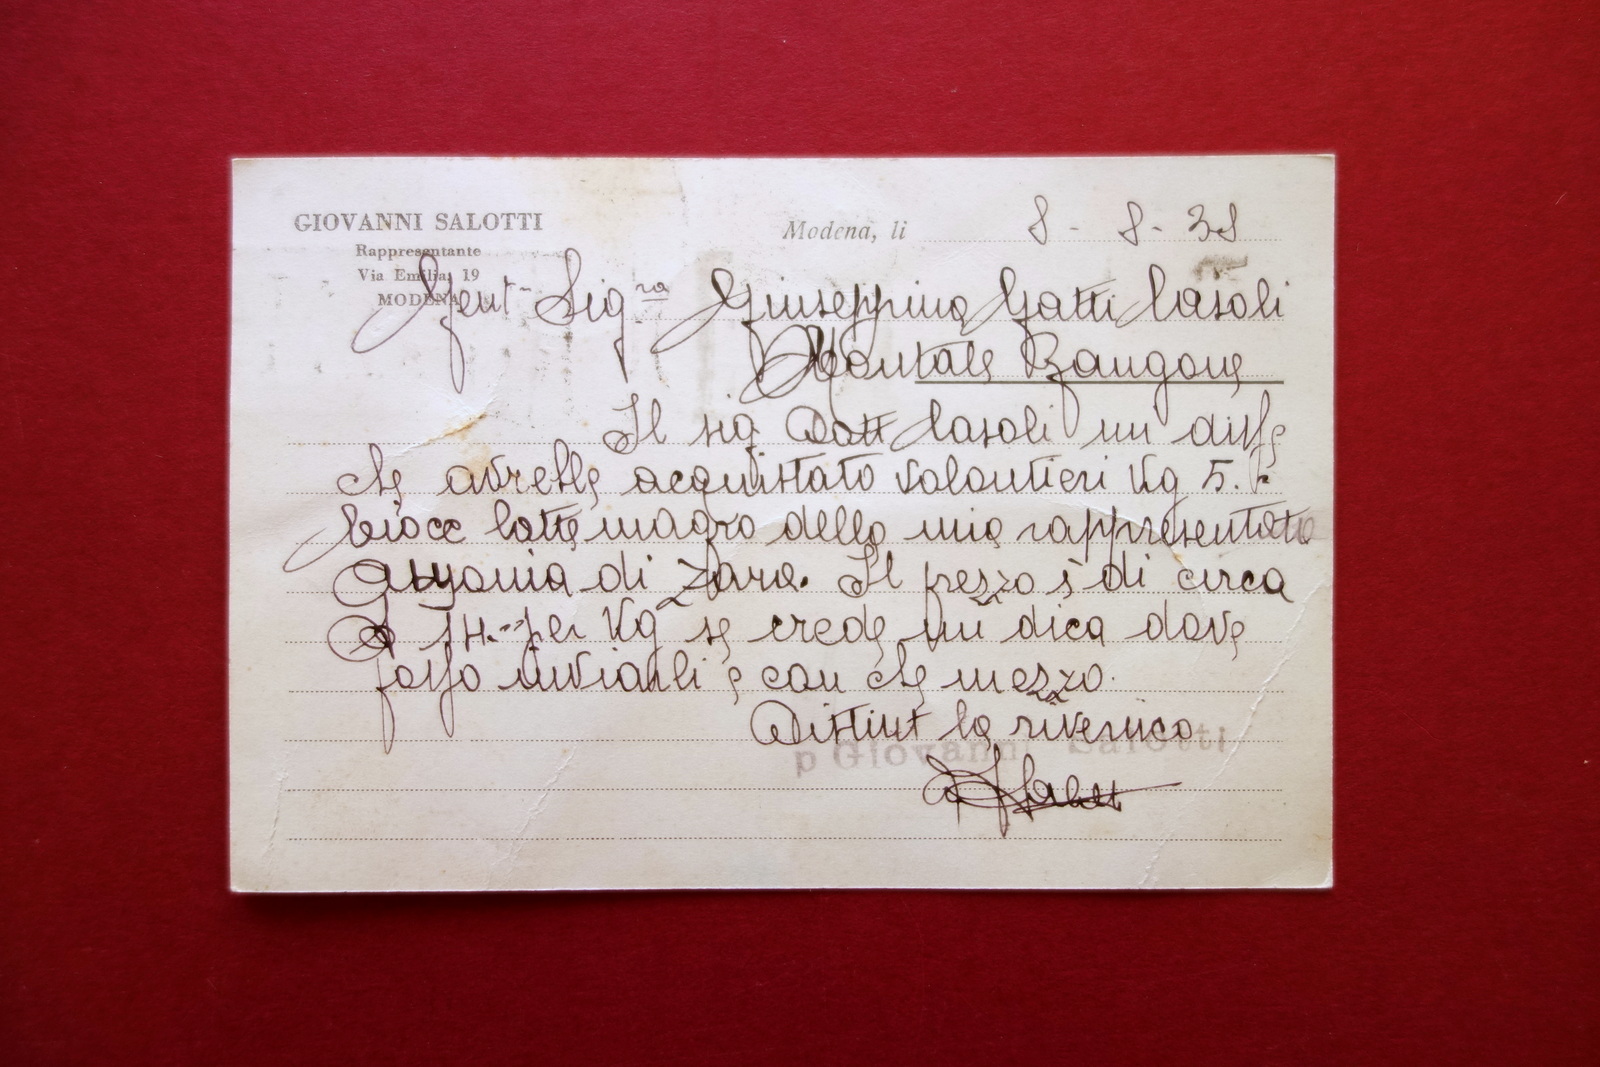 GIOVANNI SALOTTI
Rappresentante
Via Emilia, 19
MODENA
Modena, li 8 - 8 - 38
Gent. Sig.ra Giuseppina Gatti Casoli
Montale Rangone
Il sig Dott Casoli mi disse
che avrebbe acquistato volontieri Kg 5.
latte magro della mia rappresentata
di Zara. Il prezzo è di circa
per Kg se crede mi dica dove
posso inviarli e con che mezzo.
Distint la riverisco
p Giovanni Salotti